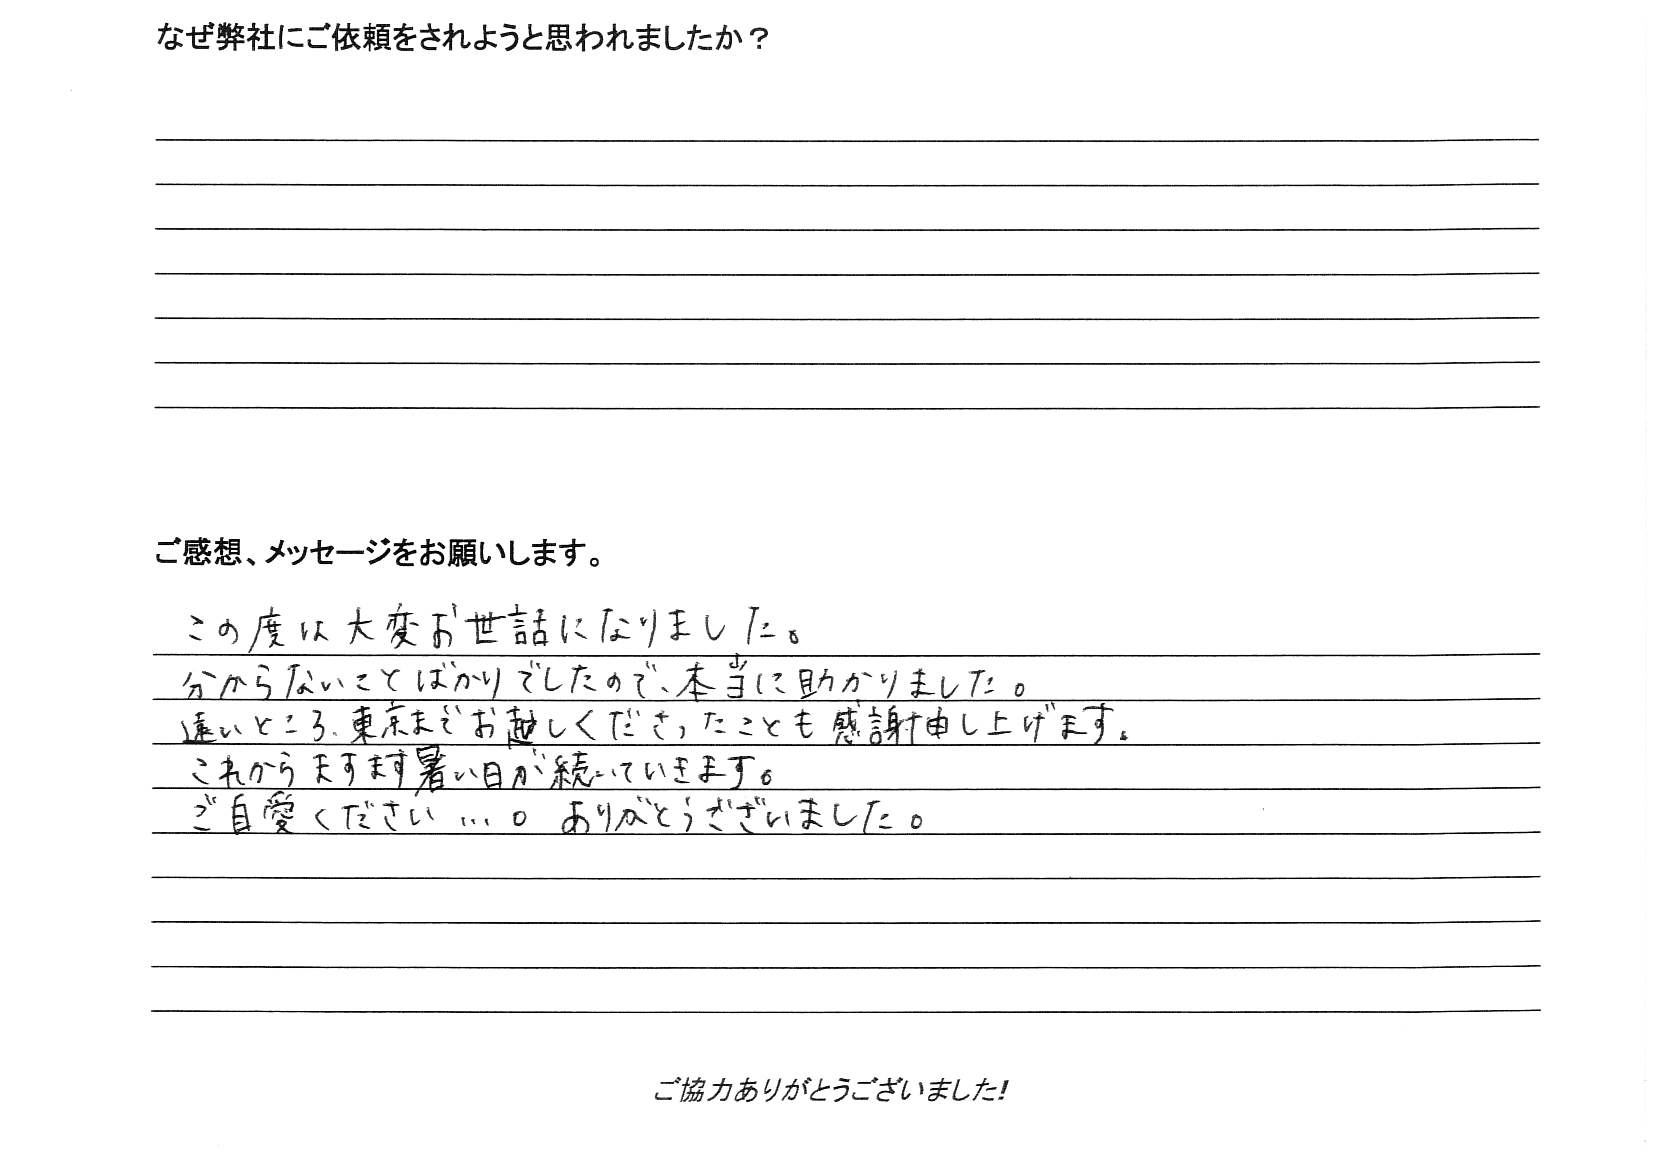 なぜ弊社にご依頼をされようと思われましたか？
ご感想、メッセージをお願いします。
この度は大変お世話になりました。
分からないことばかりでしたので、本当に助かりました。
遠いところ、東京までお越しくださったことも感謝申し上げます。
これからますます暑い日が続いていきます。
ご自愛ください…。ありがとうございました。
ご協力ありがとうございました!